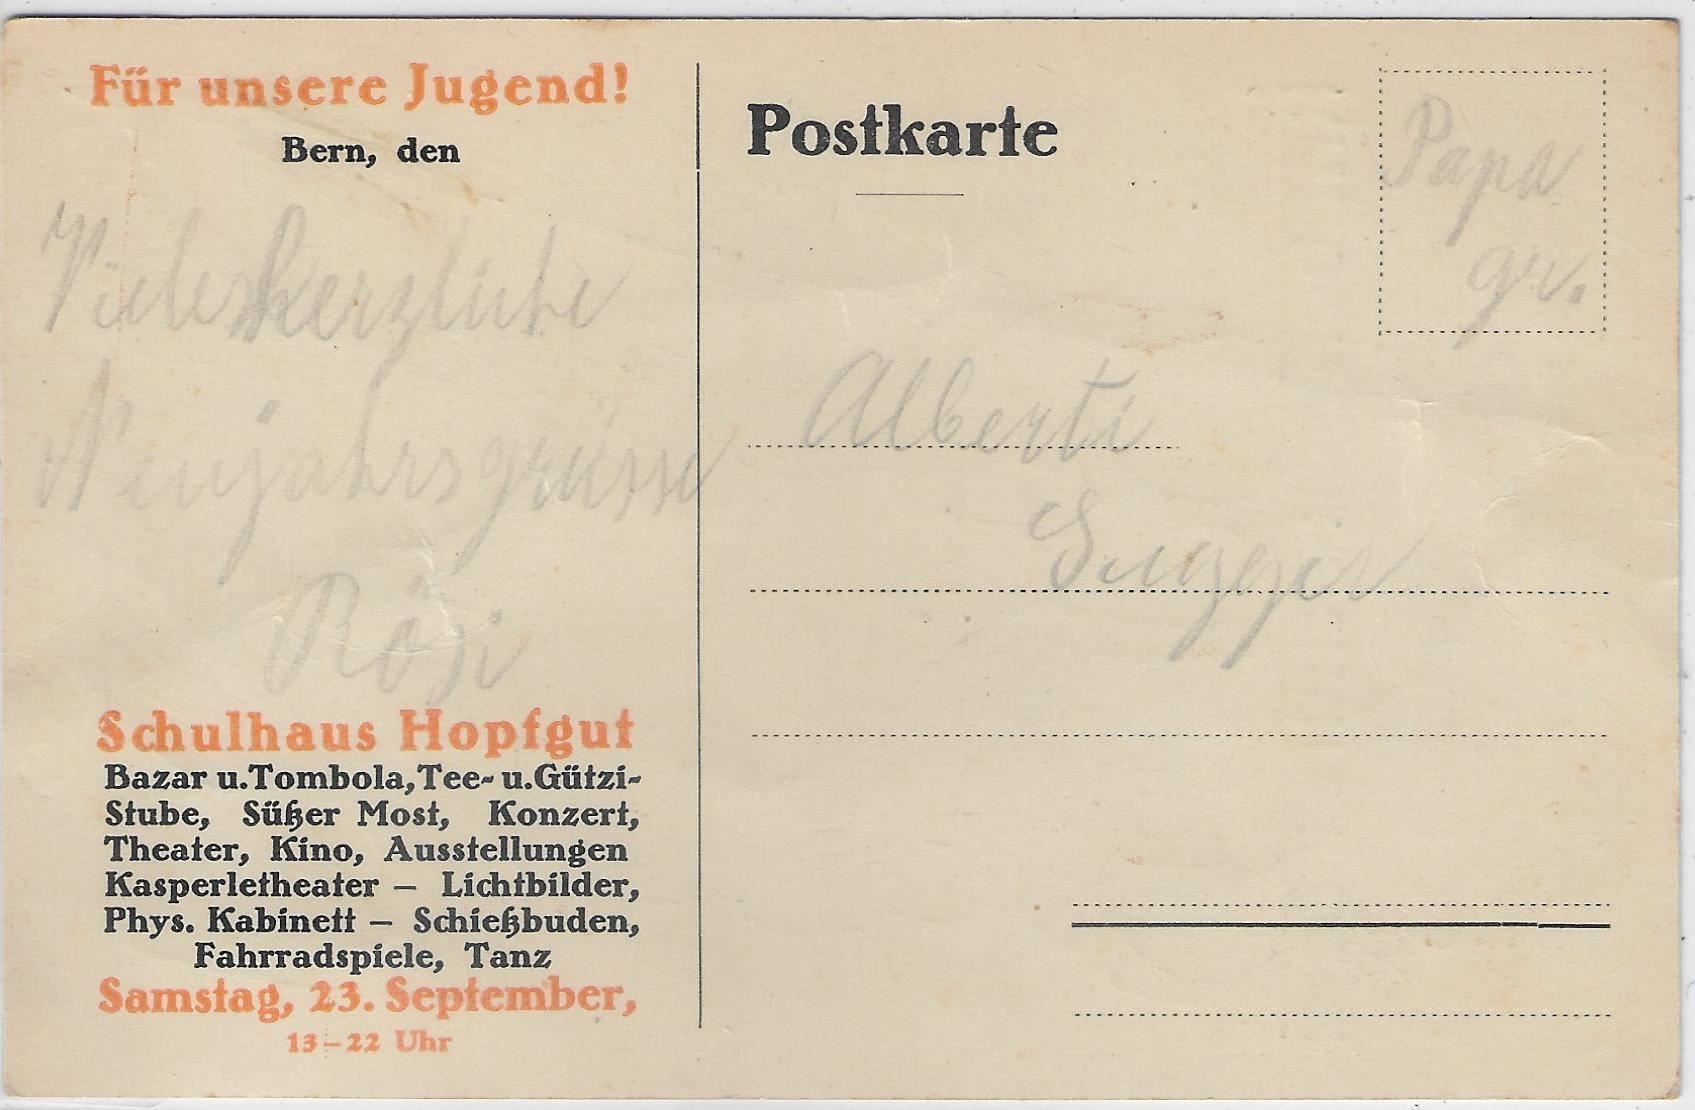 Für unsere Jugend!
Bern, den
Viele herzliche
Neujahrsgrüsse
Rösi
Schulhaus Hopfgut
Bazar u. Tombola, Tee- u. Gützi-
Stube, Süßer Most, Konzert,
Theater, Kino, Ausstellungen
Kasperletheater – Lichtbilder,
Phys. Kabinett – Schießbuden,
Fahrradspiele, Tanz
Samstag, 23. September,
13–22 Uhr
Postkarte
Papa
gr.
Alberti